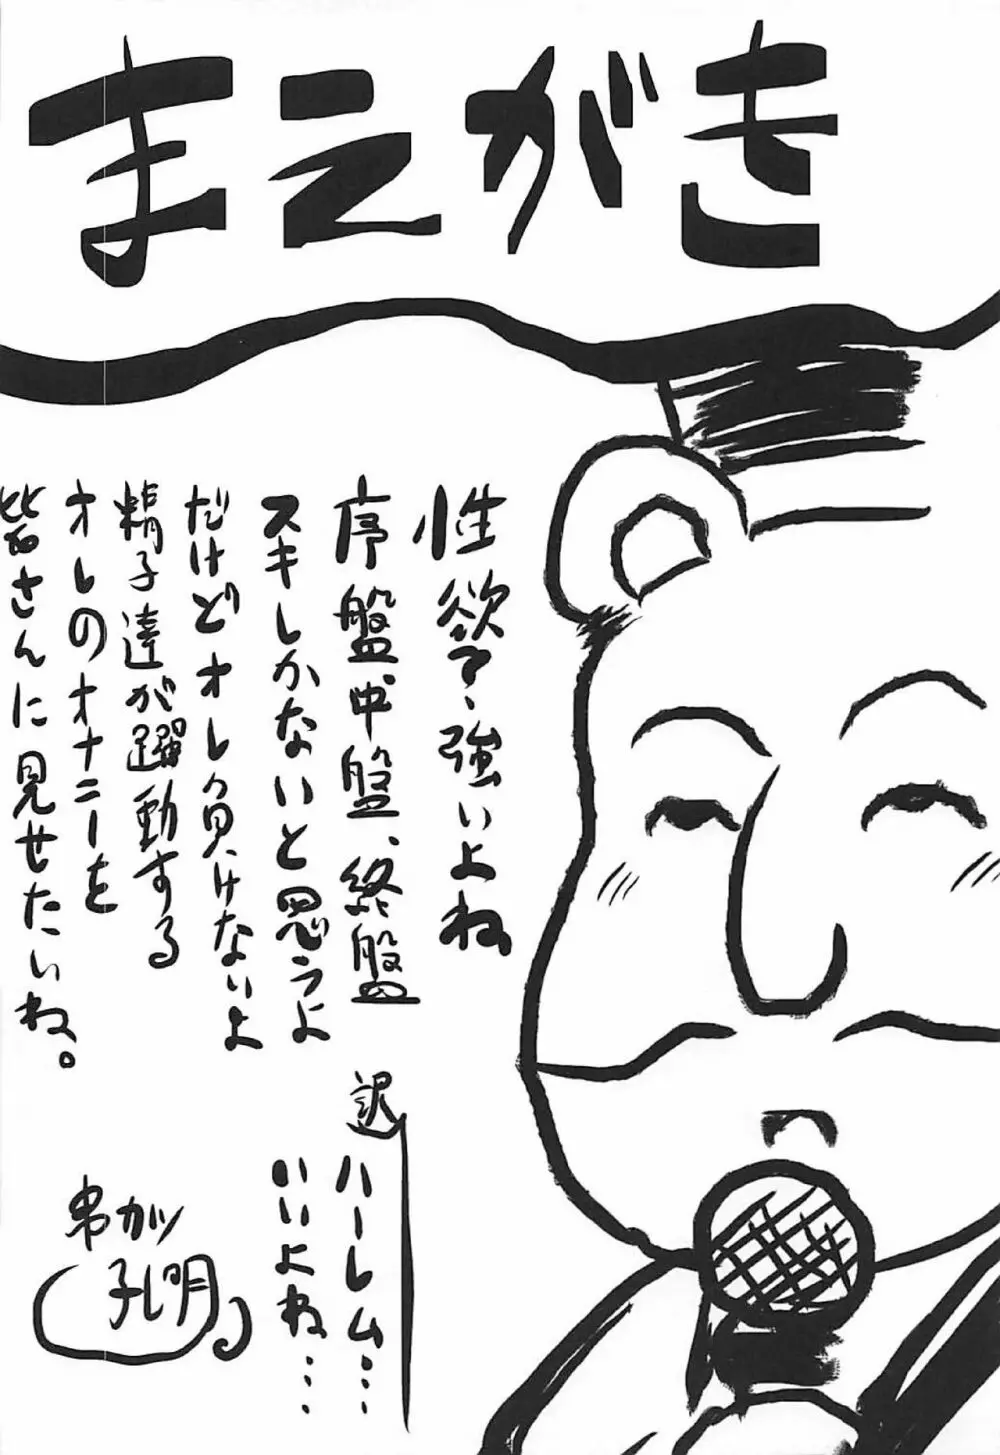 まえがき
性欲、強いよね。
序盤、中盤、終盤
スキしかないと思うよ
だけどオレ負けないよ
精子達が躍動する
オレのオナニーを
皆さんに見せたいね。
訳
ハーレム…
いいよね……
串カツ
孔明